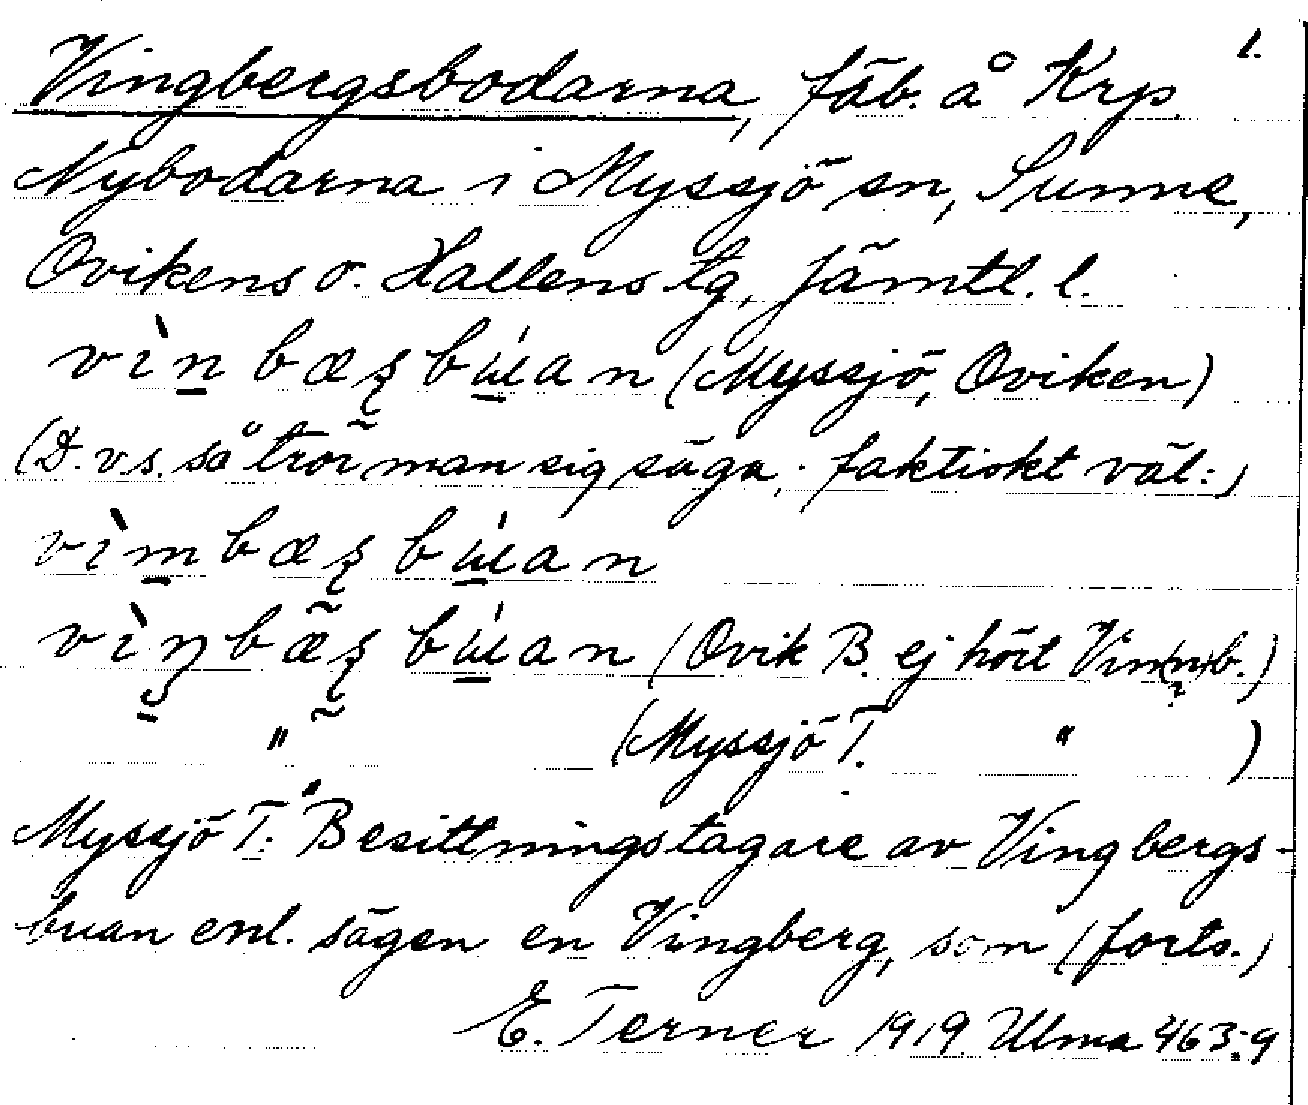 1.
Vingbergsbodarna, fäb. å Krp.
Nybodarna i Myssjö sn, Sunne,
Ovikens o. Hallens tg, Jämtl. l.
(Myssjö, Oviken)
(D.v.s. så tror man sig säga; faktiskt väl:)
(Ovik B. ej hört Vin(n)b.)
" (Myssjö T. " )
Myssjö T.: Besittningstagare av Vingbergs-
buan enl. sägen en Vingberg, som (forts.)
E. Terner 1919. Ulma 463:9